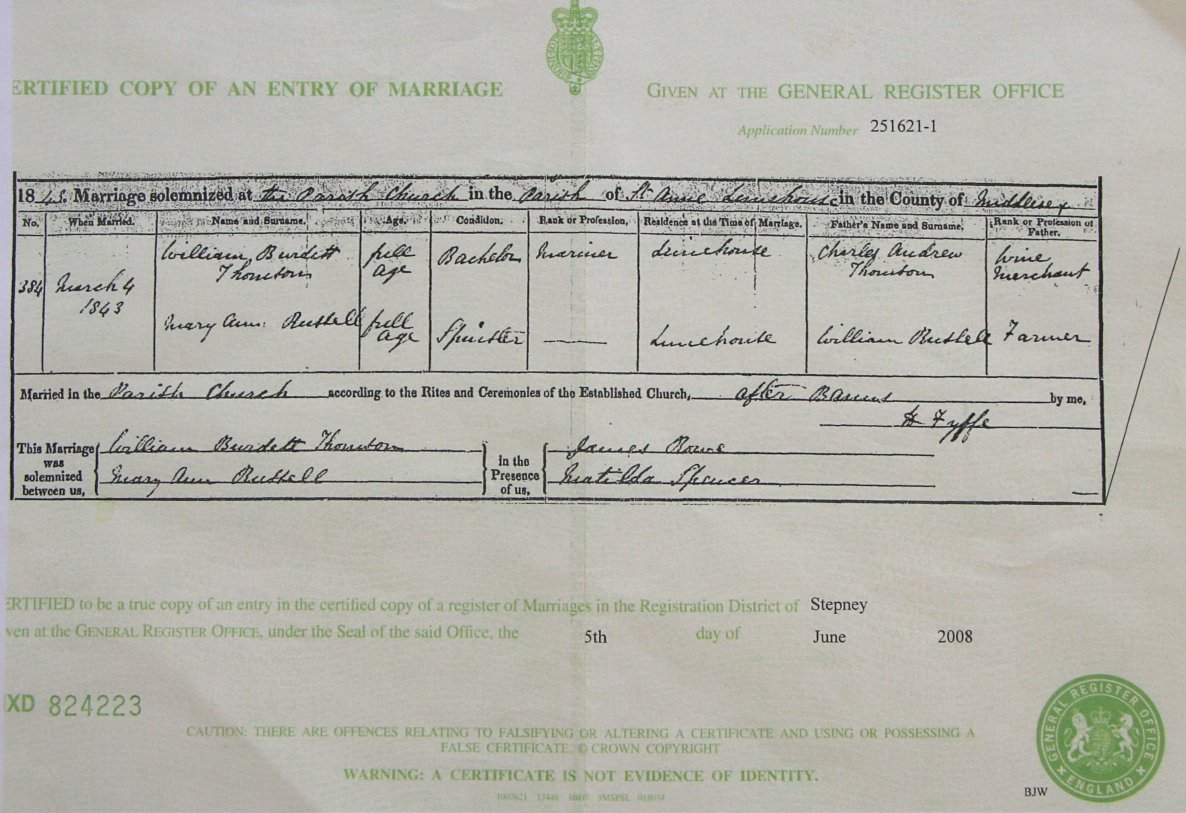 ERTIFIED COPY OF AN ENTRY OF MARRIAGE
GIVEN AT THE GENERAL REGISTER OFFICE
Application Number 251621-1
1843. Marriage solemnized at the Parish Church in the Parish of St Anne Limehouse in the County of Middlesex
No. When Married. Name and Surname. Age. Condition. Rank or Profession. Residence at the Time of Marriage. Father's Name and Surname. Rank or Profession of Father.
384 March 4 1843 William Burdett Thomson full age Bachelor Mariner Limehouse Charles Andrew Thomson Wine Merchant
Mary Ann Russell full age Spinster —— Limehouse William Russell Farmer
Married in the Parish Church according to the Rites and Ceremonies of the Established Church, after Banns by me,
Fyffe
This Marriage was solemnized between us, William Burdett Thomson
Mary Ann Russell
in the Presence of us, James Rowe
Matilda Spencer
ERTIFIED to be a true copy of an entry in the certified copy of a register of Marriages in the Registration District of Stepney
ven at the GENERAL REGISTER OFFICE, under the Seal of the said Office, the 5th day of June 2008
XD 824223
CAUTION: THERE ARE OFFENCES RELATING TO FALSIFYING OR ALTERING A CERTIFICATE AND USING OR POSSESSING A
FALSE CERTIFICATE. © CROWN COPYRIGHT
WARNING: A CERTIFICATE IS NOT EVIDENCE OF IDENTITY.
GENERAL REGISTER OFFICE
ENGLAND
BJW